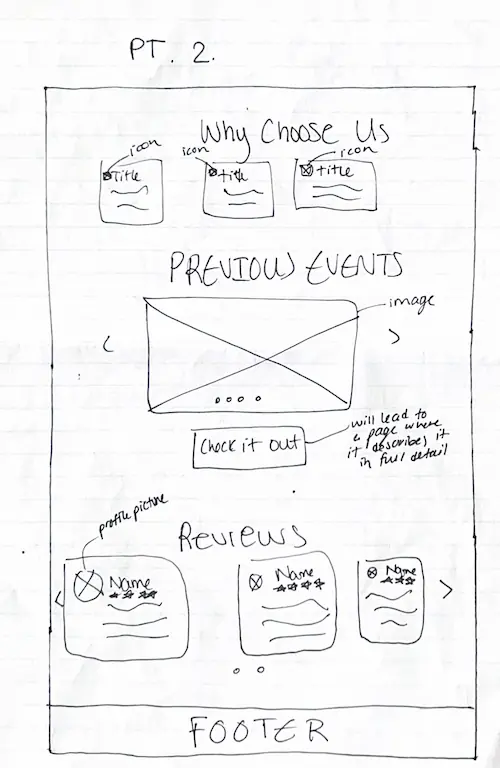 PT. 2.
Why Choose Us
icon
icon
icon
Title
title
title
PREVIOUS EVENTS
image
Check it out
will lead to
a page where
it describes it
in full detail
profile picture
Reviews
Name
Name
Name
FOOTER